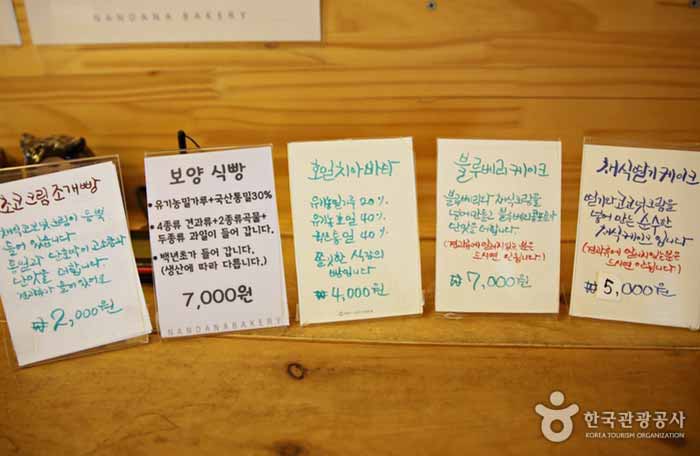 NANDANA BAKERY
초코크림조개빵
채식초코크림이 듬뿍
들어 있습니다.
통밀과 단호박이 고소함과
단맛을 더합니다.
₩ 2,000원
보양 식빵
• 유기농밀가루+국산통밀30%
• 4종류 견과류+2종류곡물+
두종류 과일이 들어 갑니다.
• 백년초가 들어 갑니다.
(생산에 따라 다릅니다.)
7,000원
NANDANABAKERY
호밀치아바타
유기농밀가루 20%
유기농호밀 40%
국산통밀 40%
쫄깃한 식감의
빵입니다
₩ 4,000원
블루베리케이크
블루베리와 채식크림을
넣어 만들고 블루베리콩포트가
단맛을 더합니다.
(견과류에 알레르기있는분은
드시면 안됩니다)
₩ 7,000원
채식딸기케이크
딸기와 코코넛크림을
넣어 만든 순수한
채식케이크입니다
(견과류에 알레르기있는분은
드시면 안됩니다!)
₩ 5,000원
한국관광공사
KOREA TOURISM ORGANIZATION